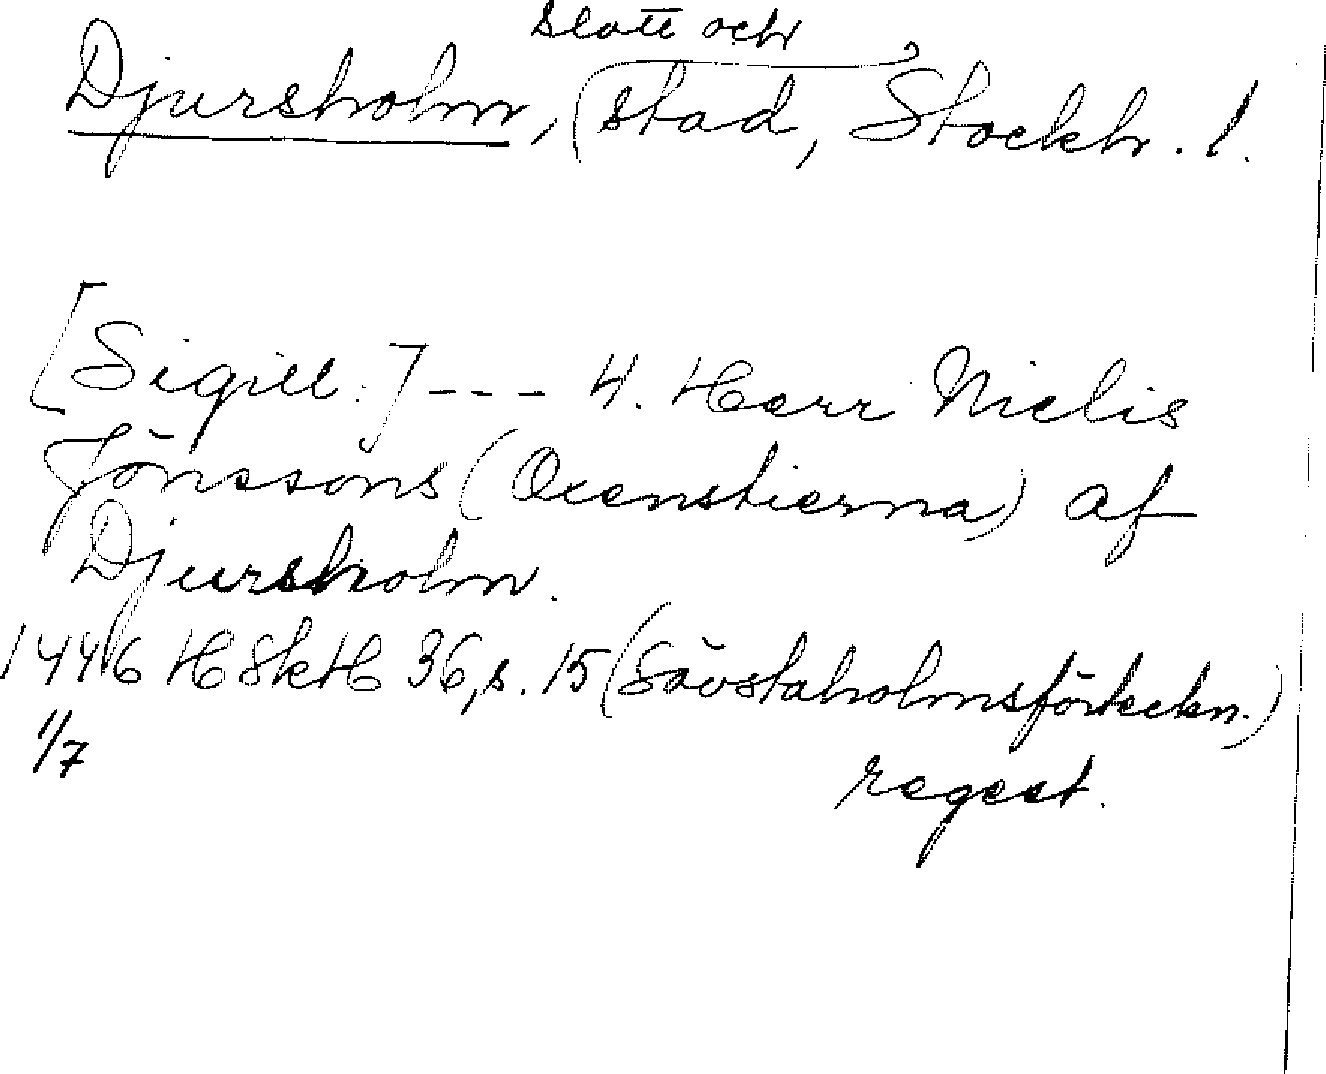 slott och
Djursholm, (stad, Stockh. l.
[Sigill:] --- 4. Herr Nielis
Jönssons (Oxenstierna) af
Djursholm.
1446 HSkH 36, s. 15 (Sävstaholmsförteckn.)
1/7
regest.